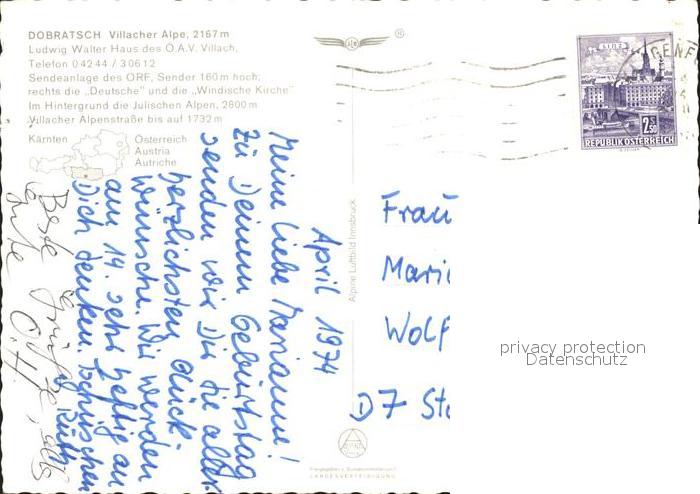 DOBRATSCH Villacher Alpe, 2167 m
Ludwig Walter Haus des Ö.A.V. Villach,
Telefon 04244 / 30612
Sendeanlage des ORF, Sender 160 m hoch;
rechts die „Deutsche" und die „Windische Kirche"
Im Hintergrund die Julischen Alpen, 2800 m
Villacher Alpenstraße bis auf 1732 m
Kärnten
Österreich
Austria
Autriche
®
LINZ
2.50
REPUBLIK ÖSTERREICH
GENF
Alpine Luftbild Innsbruck
April 1974
Meine liebe Marianne!
Zu Deinem Geburtstag
senden wir Dir die aller
herzlichsten Glück-
wünsche. Wir werden
am 14. sehr heftig an
Dich denken.
Ruth
Beste Grüße,
Frau
Mari
Wolf
D 7 Stu
privacy protection
Datenschutz
LANDESVERTEIDIGUNG